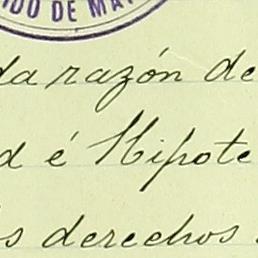 IDO DE MA
da razón de
d é Hipote
s derechos